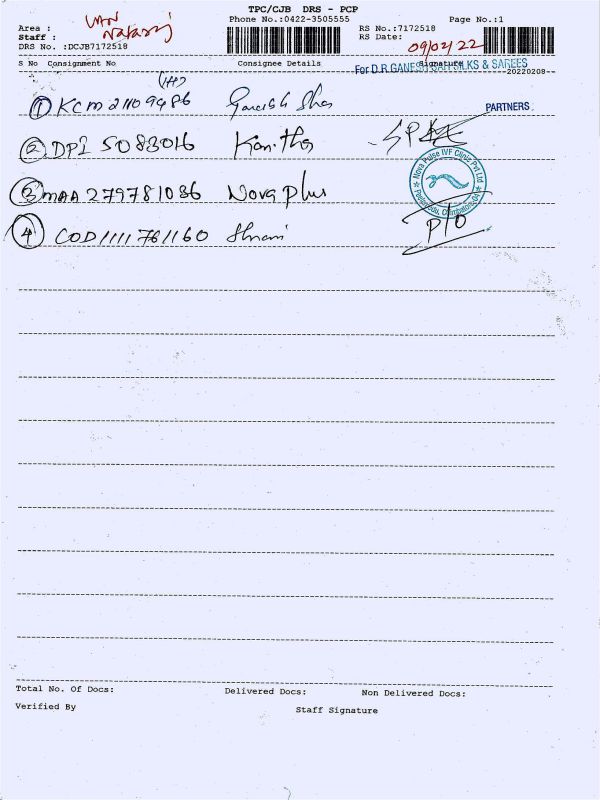 TPC/CJB DRS - PCP
Area : VAN Phone No.:0422-3505555 Page No.:1
Staff : Nataraj RS No.:7172518
DRS No. :DCJB7172518 RS Date: 09/02/22
S No Consignment No Consignee Details Signature
For D.R.GANESH SILKS & SAREES
20220208
PARTNERS
1 KCM 21109486
2 DPI 5083016 Kanitha
3 MAA 279781086 Nova plus
4 COD1111761160
Nova Pulse IVF Clinic Pvt Ltd
P/O
Total No. Of Docs: Delivered Docs: Non Delivered Docs:
Verified By Staff Signature